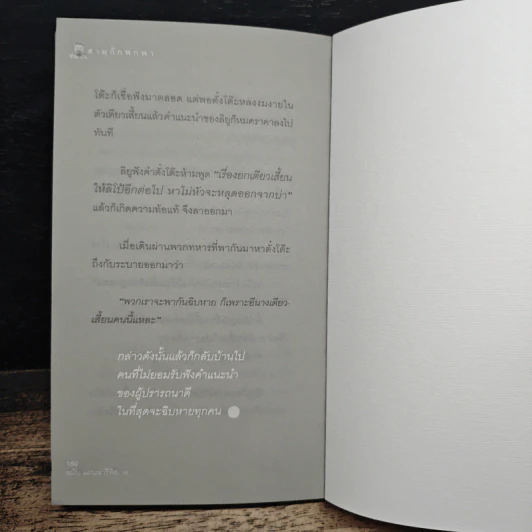 สามก๊กพกพา
โต๊ะก็เชื่อฟังมาตลอด แต่พอตั๋งโต๊ะหลงงมงายใน
ตัวเตียวเสี้ยนแล้วคำแนะนำของลิยูก็หมดราคาลงไป
ทันที
ลิยูฟังคำตั๋งโต๊ะห้ามพูด "เรื่องยกเตียวเสี้ยน
ให้ลิโป้อีกต่อไป หาไม่หัวจะหลุดออกจากบ่า"
แล้วก็เกิดความท้อแท้ จึงลาออกมา
เมื่อเดินผ่านพวกทหารที่พากันมาหาตั๋งโต๊ะ
ถึงกับระบายออกมาว่า
"พวกเราจะพากันฉิบหาย ก็เพราะอีนางเตียว-
เสี้ยนคนนี้แหละ"
กล่าวดังนั้นแล้วก็กลับบ้านไป
คนที่ไม่ยอมรับฟังคำแนะนำ
ของผู้ปรารถนาดี
ในที่สุดจะฉิบหายทุกคน